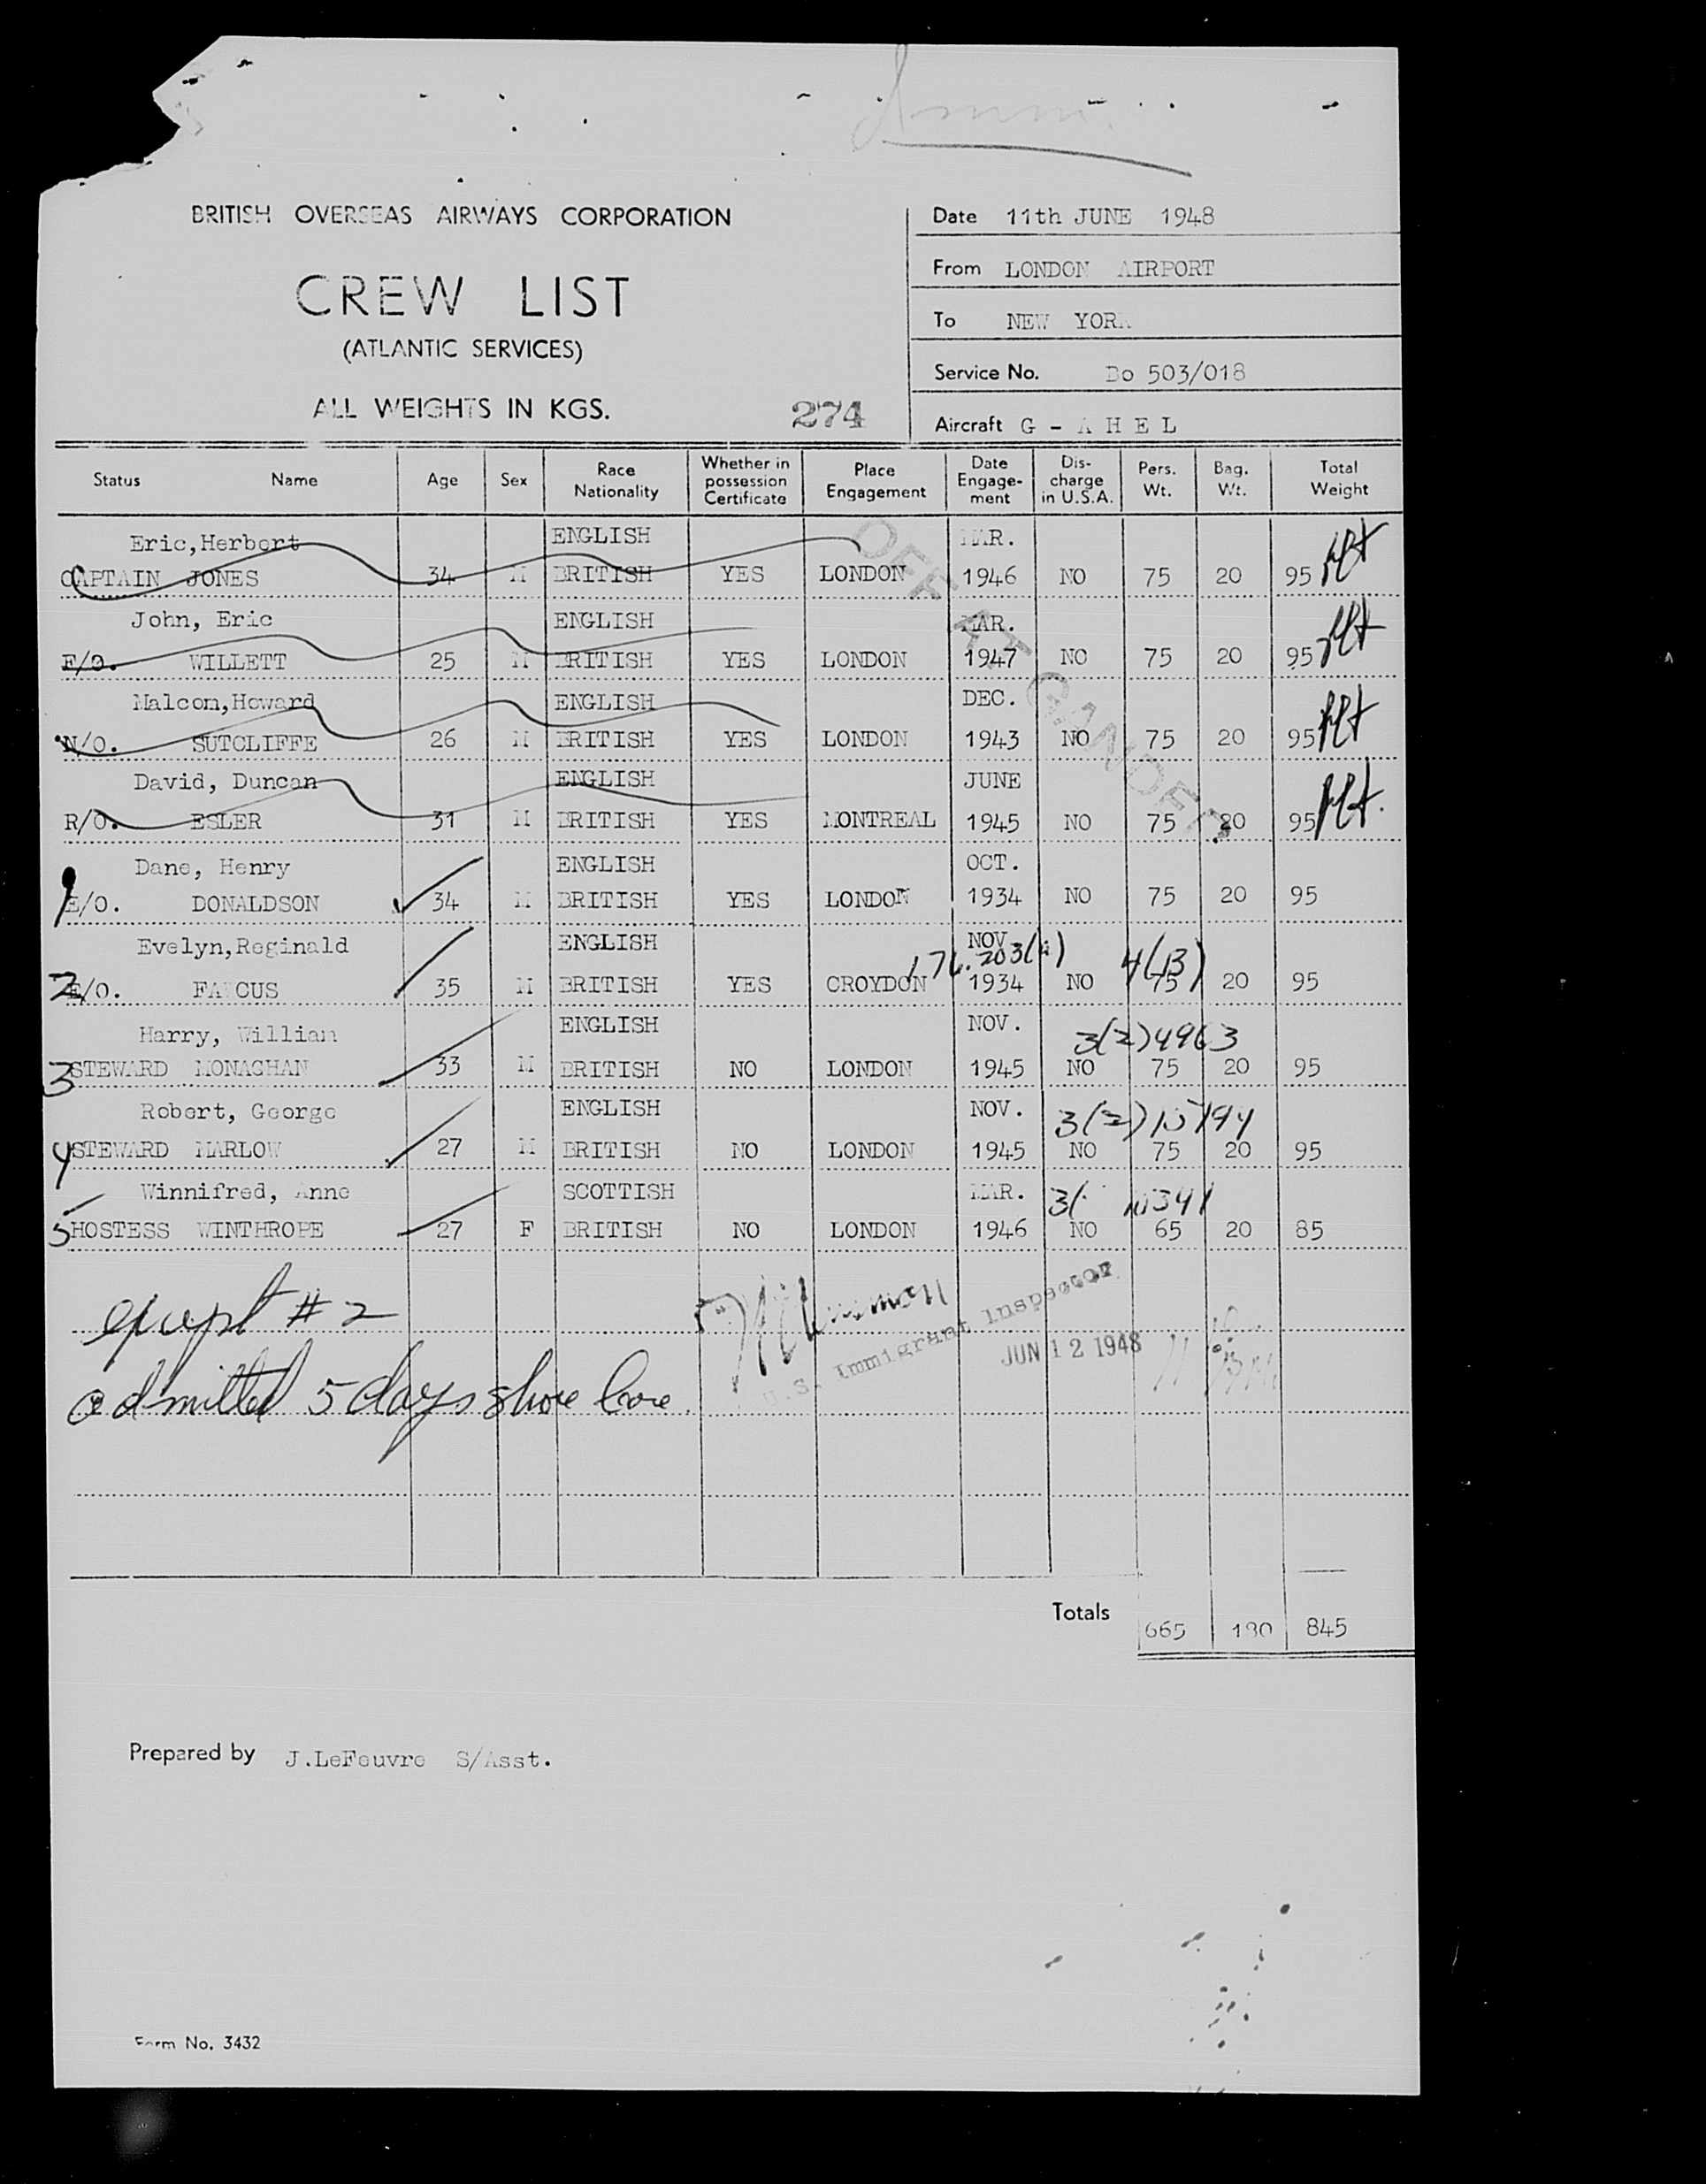 BRITISH OVERSEAS AIRWAYS CORPORATION
CREW LIST
(ATLANTIC SERVICES)
ALL WEIGHTS IN KGS.
274
Date 11th JUNE 1948
From LONDON AIRPORT
To NEW YORK
Service No. Bo 503/018
Aircraft G - A H E L
Status Name Age Sex Race Nationality Whether in possession Certificate Place Engagement Date Engage-ment Dis-charge in U.S.A. Pers. Wt. Bag. Wt. Total Weight
Eric,Herbert ENGLISH MAR.
CAPTAIN JONES 34 M BRITISH YES LONDON 1946 NO 75 20 95
John, Eric ENGLISH MAR.
F/O. WILLETT 25 M BRITISH YES LONDON 1947 NO 75 20 95
Malcom,Howard ENGLISH DEC.
N/O. SUTCLIFFE 26 M BRITISH YES LONDON 1943 NO 75 20 95
David, Duncan ENGLISH JUNE
R/O. ESLER 31 M BRITISH YES MONTREAL 1945 NO 75 20 95
OFF AT GANDER
Dane, Henry ENGLISH OCT.
1 E/O. DONALDSON 34 M BRITISH YES LONDON 1934 NO 75 20 95
Evelyn,Reginald ENGLISH NOV
176.203(a) 4(B)
2 E/O. FAWCUS 35 M BRITISH YES CROYDON 1934 NO 75 20 95
Harry, William ENGLISH NOV. 3(2)4963
3 STEWARD MONAGHAN 33 M BRITISH NO LONDON 1945 NO 75 20 95
Robert, George ENGLISH NOV. 3(2)15794
4 STEWARD MARLOW 27 M BRITISH NO LONDON 1945 NO 75 20 95
Winnifred, Anne SCOTTISH MAR.
5 HOSTESS WINTHROPE 27 F BRITISH NO LONDON 1946 NO 65 20 85
except # 2
admitted 5 days shore leave
U.S. Immigrant Inspector
JUN 12 1948
Totals 665 180 845
Prepared by J.LeFeuvre S/Asst.
Form No. 3432